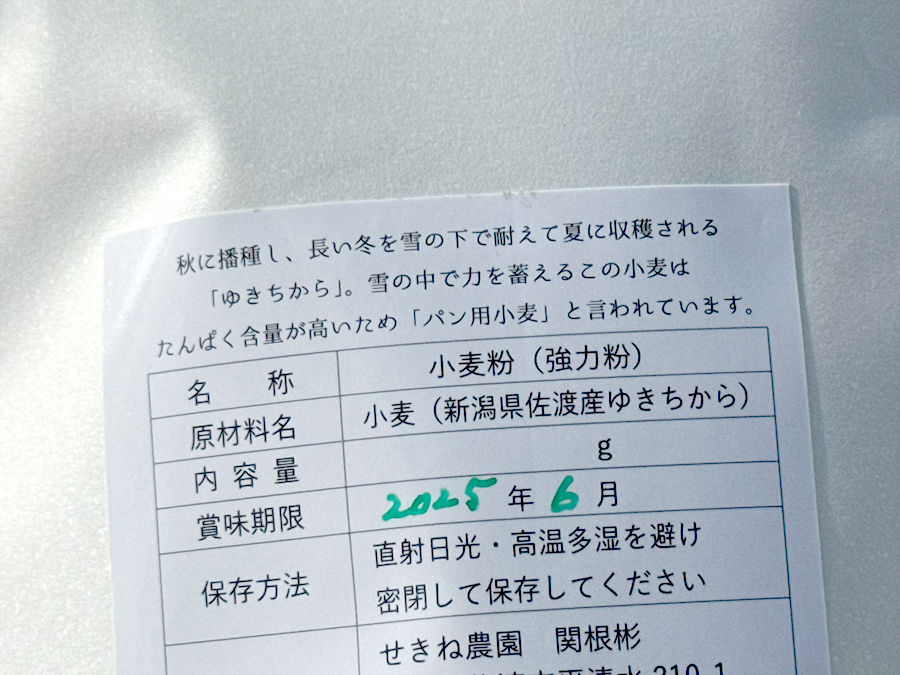 秋に播種し、長い冬を雪の下で耐えて夏に収穫される
「ゆきちから」。雪の中で力を蓄えるこの小麦は
たんぱく含量が高いため「パン用小麦」と言われています。
名 称 小麦粉（強力粉）
原材料名 小麦（新潟県佐渡産ゆきちから）
内容量 g
賞味期限 2025年6月
保存方法 直射日光・高温多湿を避け
密閉して保存してください
せきね農園 関根彬
210-1